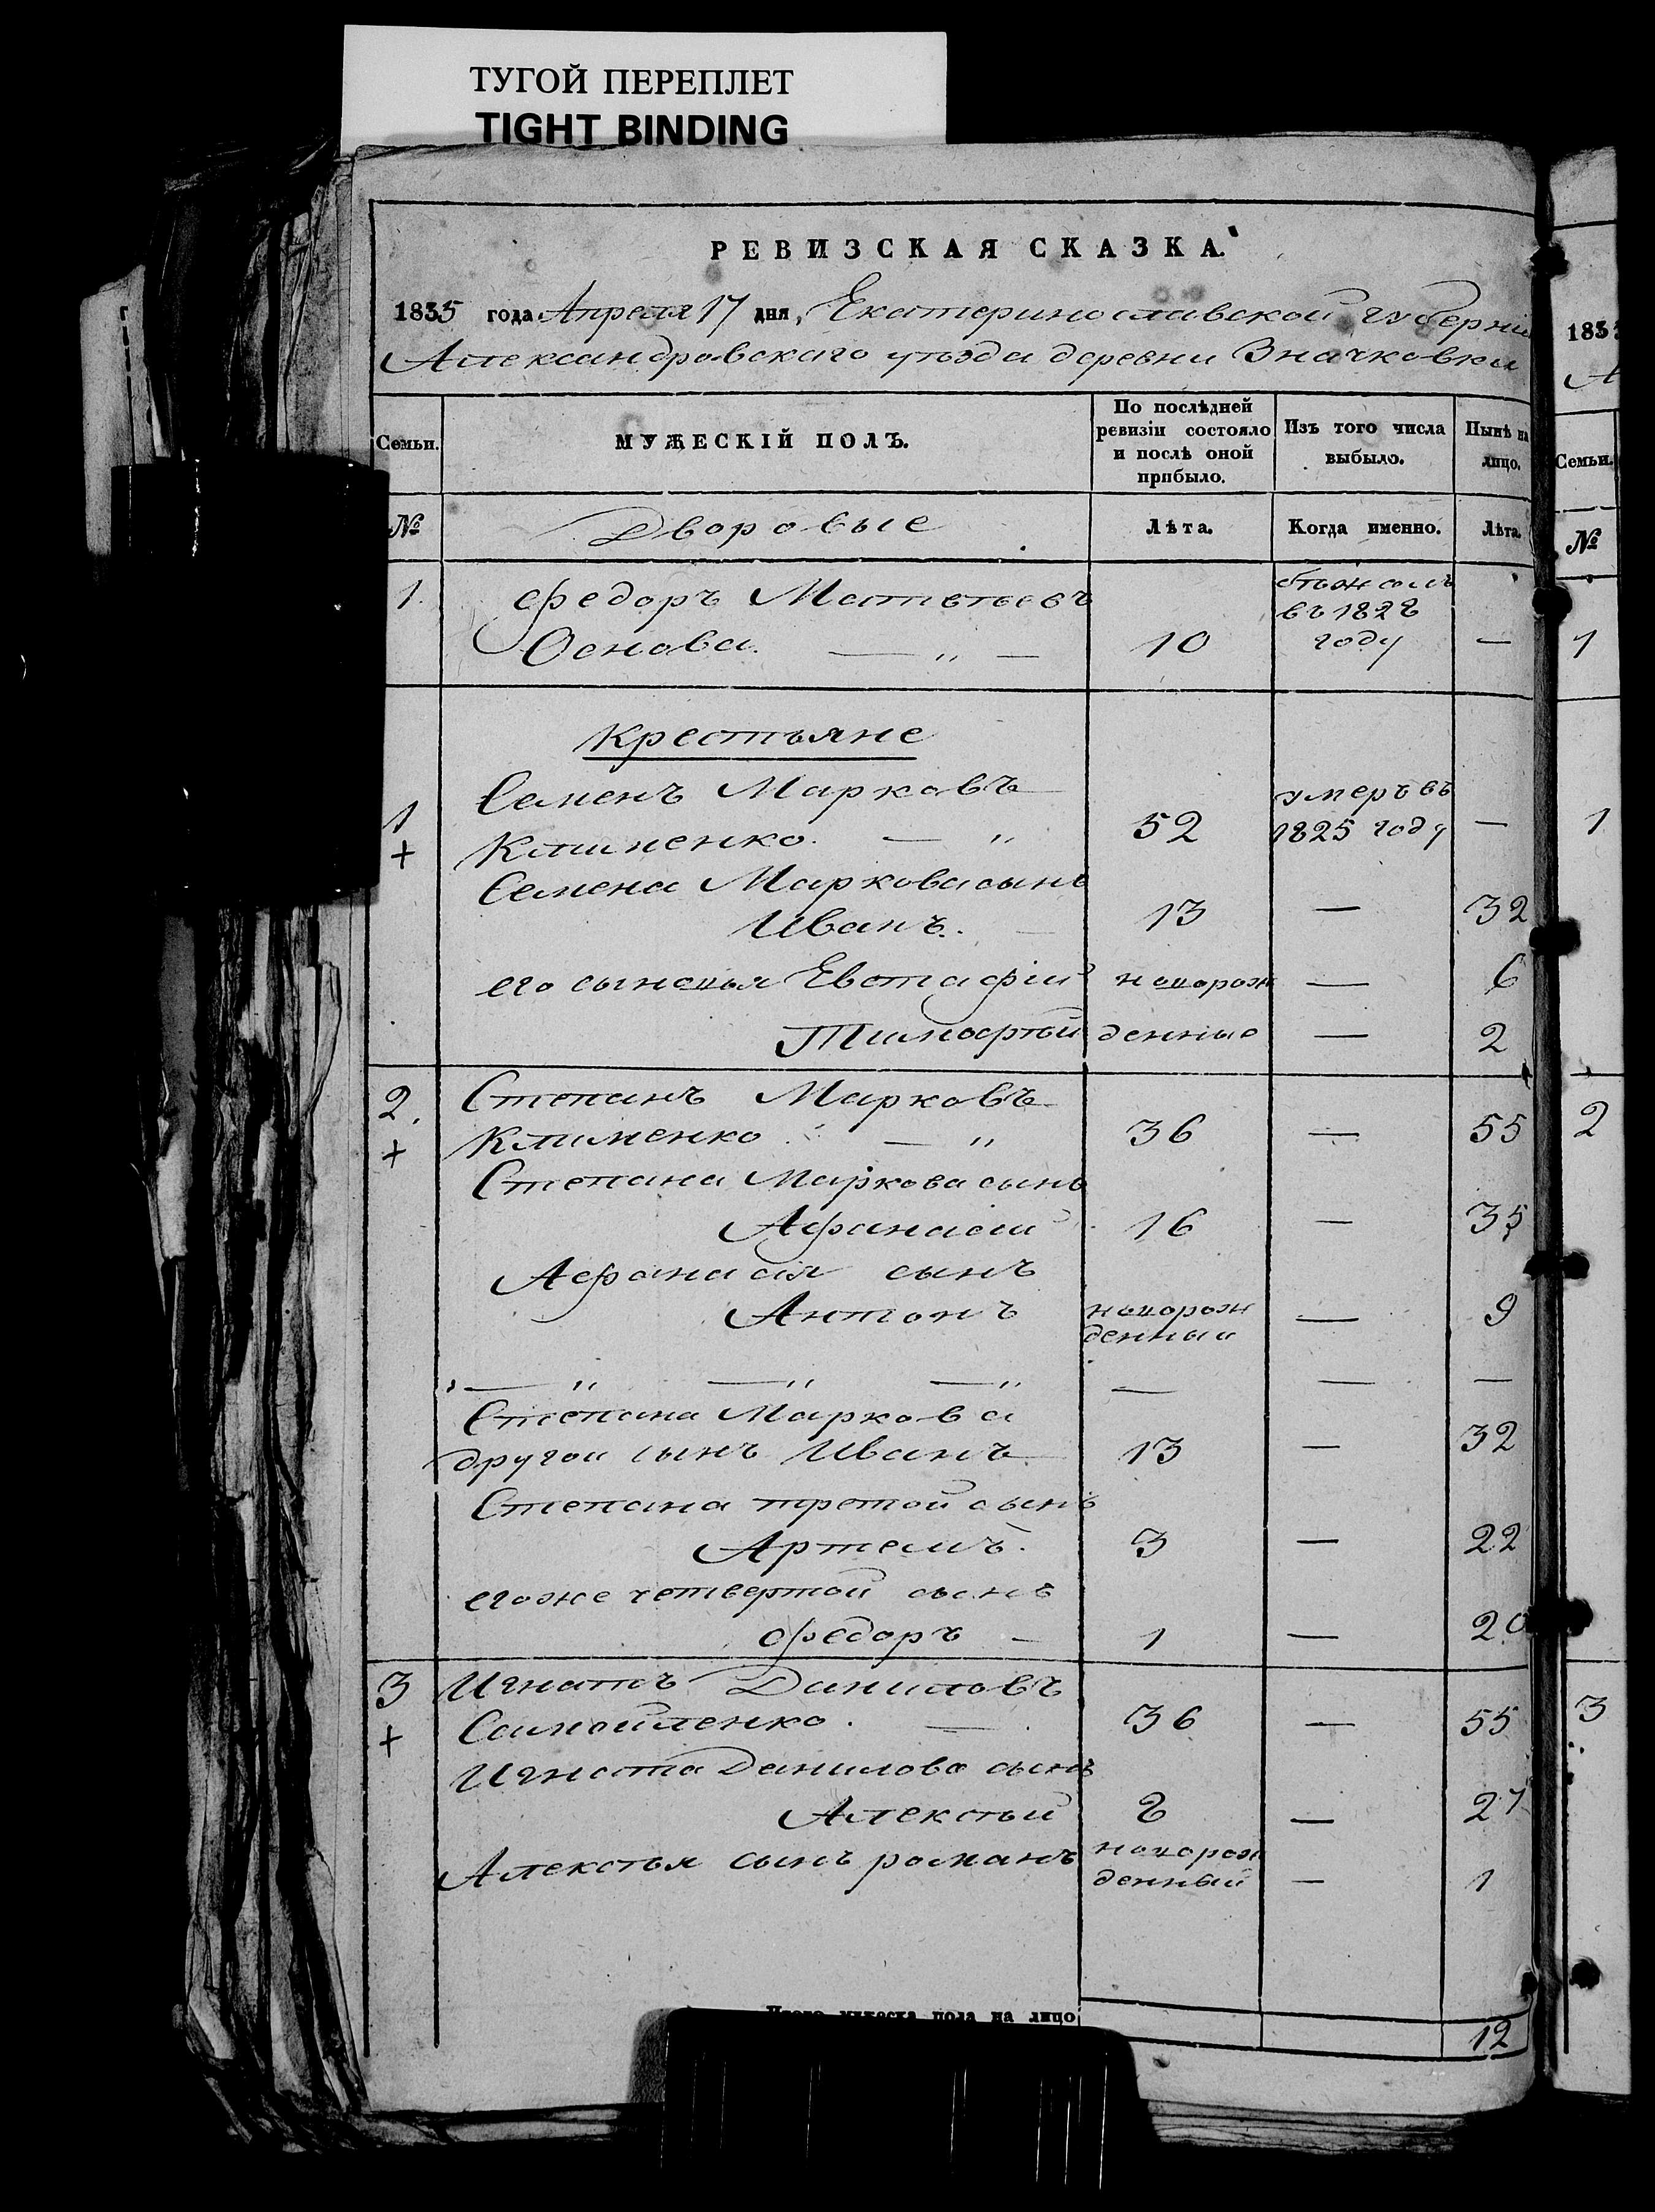 ТУГОЙ ПЕРЕПЛЕТ
TIGHT BINDING
РЕВИЗСКАЯ СКАЗКА.
1835 года Апреля 17 дня, Екатеринославской губерніи
Александровскаго уѣзда деревни Значковки
Семьи. МУЖЕСКІЙ ПОЛЪ. По послѣдней ревизіи состояло и послѣ оной прибыло. Изъ того числа выбыло. Нынѣ на лицо.
№ Дворовые Лѣта. Когда именно. Лѣта.
1. Федоръ Матвѣевъ бѣжалъ
въ 1828
Основа. — „ — 10 году —
Крестьяне
1 Семенъ Марковъ умеръ въ
+ Клименко. — „ 52 1825 году —
Семена Маркова сынъ
Иванъ. 13 — 32
его сыновья Евстафій новорож — 6
Тимофѣй денные — 2
2. Степанъ Марковъ
+ Клименко. — „ 36 — 55
Степана Маркова сынъ
Афанасій 16 — 35
Афанасія сынъ
Антонъ новорож — 9
денный
— „ — „ — „ — — —
Степана Маркова
другой сынъ Иванъ 13 — 32
Степана третой сынъ
Артемъ. 3 — 22
егоже четвертой сынъ
Федоръ — 1 — 20
3 Игнатъ Даниловъ
+ Самойленко. — 36 — 55
Игната Данилова сынъ
Алексѣй 8 — 27
Алексѣя сынъ романъ новорож
денный — 1
пола на лицо 12
183
А
Семьи.
№
1
1
2
3